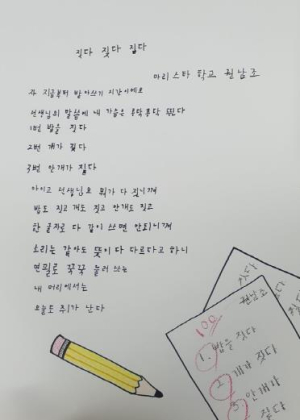 짓다 짖다 짙다
마리스타 학교 원남조
자 지금부터 받아쓰기 시간이에요
선생님의 말씀에 내 가슴은 퐁당퐁당 뛴다
1번 밥을 짓다
2번 개가 짖다
3번 안개가 짙다
아이고 선생님요 뭐가 다 짓니껴
밥도 짓고 개도 짖고 안개도 짙고
한 글자로 다 같이 쓰면 안되니껴
소리는 같아도 뜻이 다 다르다고 하니
연필로 꾹꾹 눌러 쓰는
내 머리에서는
오늘도 쥐가 난다
받아쓰기
원남조
100
1. 밥을 짓다
2. 개가 짖다
3. 안개가
짙다